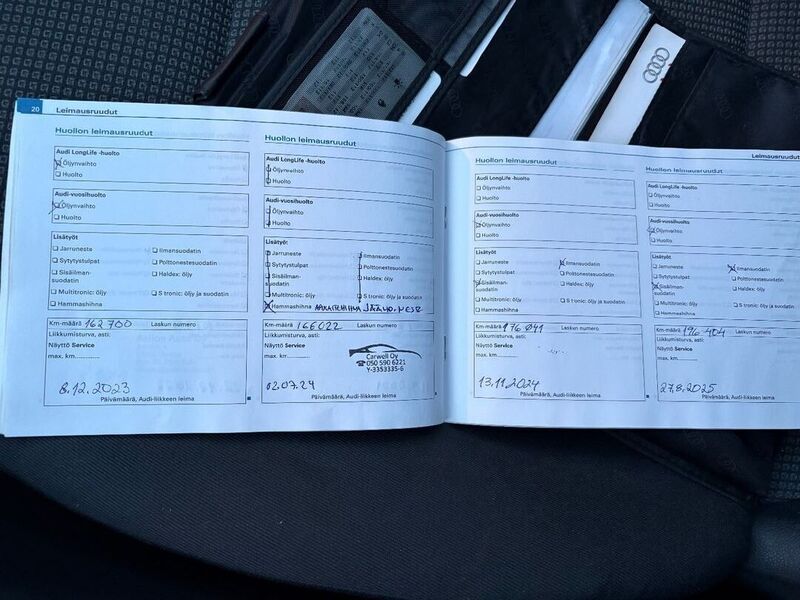 20 Leimausruudut
Huollon leimausruudut
Audi LongLife -huolto
Öljynvaihto
Huolto
Audi-vuosihuolto
Öljynvaihto
Huolto
Lisätyöt
Jarruneste
Ilmansuodatin
Sytytystulpat
Polttonestesuodatin
Sisäilman-
suodatin
Haldex: öljy
Multitronic: öljy
S tronic: öljy ja suodatin
Hammashihna
Km-määrä 162 700 Laskun numero
Liikkumisturva, asti:
Näyttö Service
max. km
8.12.2023
Päivämäärä, Audi-liikkeen leima
Huollon leimausruudut
Audi LongLife -huolto
Öljynvaihto
Huolto
Audi-vuosihuolto
Öljynvaihto
Huolto
Lisätyöt
Jarruneste
Ilmansuodatin
Sytytystulpat
Polttonestesuodatin
Sisäilman-
suodatin
Haldex: öljy
Multitronic: öljy
S tronic: öljy ja suodatin
Hammashihna
Km-määrä 166022 Laskun numero
Liikkumisturva, asti:
Näyttö Service
max. km
Carwell Oy
050 590 6221
Y-3353335-6
02.07.24
Päivämäärä, Audi-liikkeen leima
Leimausruudut
Huollon leimausruudut
Audi LongLife -huolto
Öljynvaihto
Huolto
Audi-vuosihuolto
Öljynvaihto
Huolto
Lisätyöt
Jarruneste
Ilmansuodatin
Sytytystulpat
Polttonestesuodatin
Sisäilman-
suodatin
Haldex: öljy
Multitronic: öljy
S tronic: öljy ja suodatin
Hammashihna
Km-määrä 176 041 Laskun numero
Liikkumisturva, asti:
Näyttö Service
max. km
13.11.2024
Päivämäärä, Audi-liikkeen leima
Huollon leimausruudut
Audi LongLife -huolto
Öljynvaihto
Huolto
Audi-vuosihuolto
Öljynvaihto
Huolto
Lisätyöt
Jarruneste
Ilmansuodatin
Sytytystulpat
Polttonestesuodatin
Sisäilman-
suodatin
Haldex: öljy
Multitronic: öljy
S tronic: öljy ja suodatin
Hammashihna
Km-määrä 196 404 Laskun numero
Liikkumisturva, asti:
Näyttö Service
max. km
27.8.2025
Päivämäärä, Audi-liikkeen leima